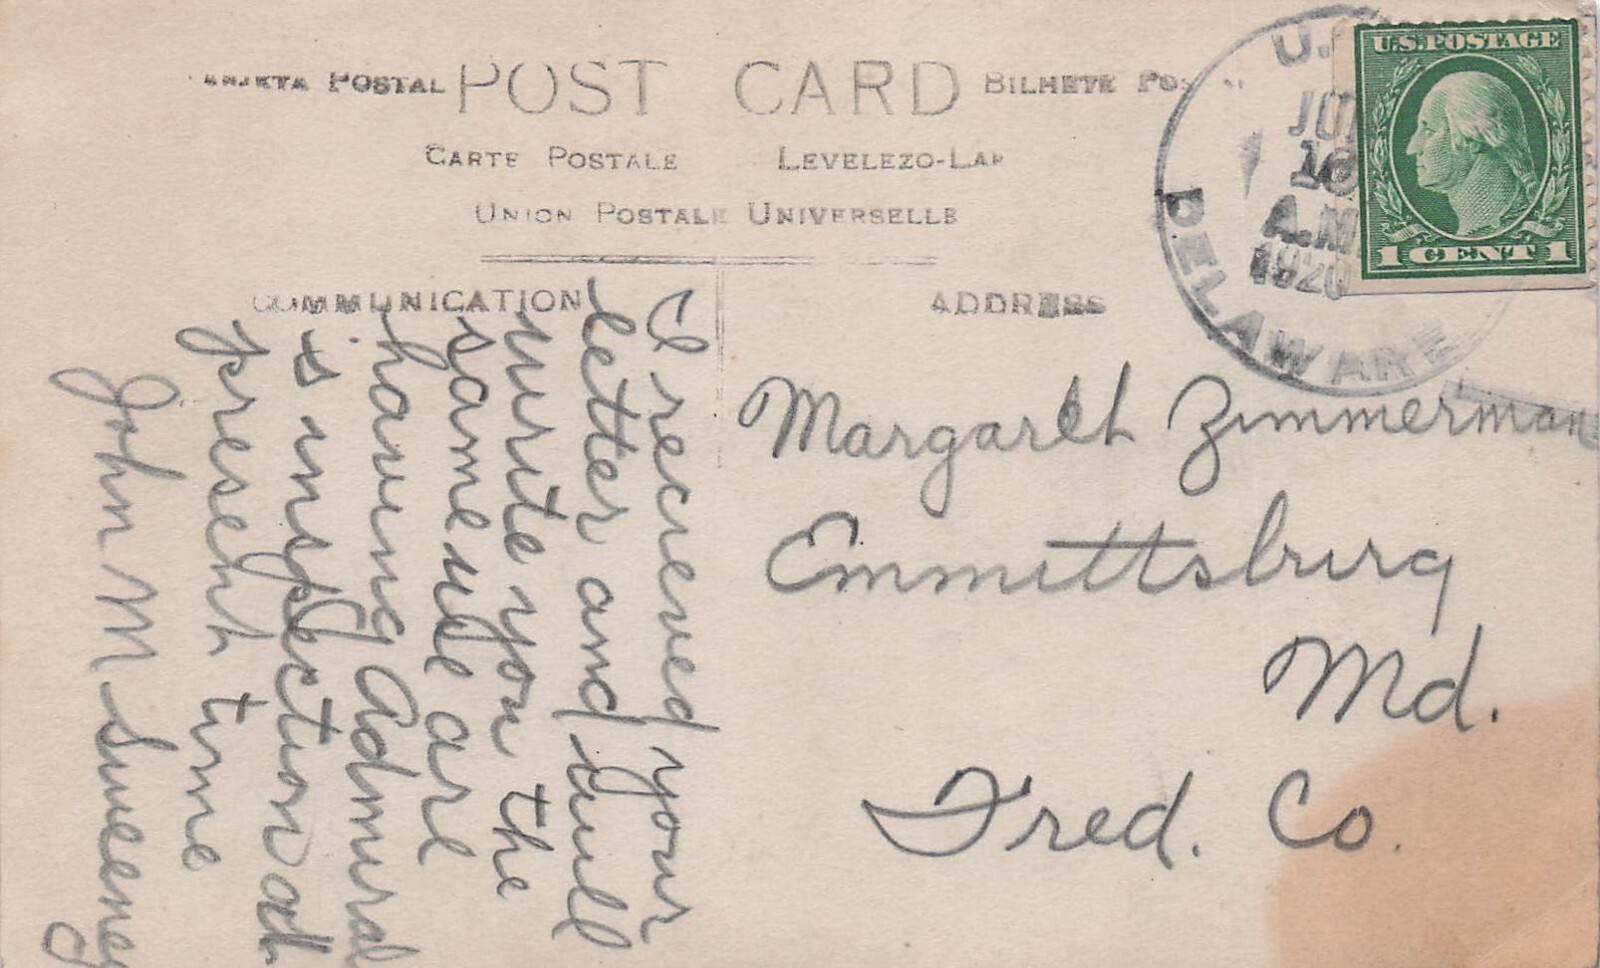 POSTAL POST CARD BILHETE
CARTE POSTALE LEVELEZO-LAP
UNION POSTALE UNIVERSELLE
COMMUNICATION
ADDRESS
U.
JU
A.M
1920
DELAWARE
U.S.POSTAGE
1 CENT 1
I recieved your
letter and will
write you the
same we are
having Admiral
is inspection at
present time
John M Sweeney
Margareth Zimmerman
Emmittsburg
Md.
Fred. Co.